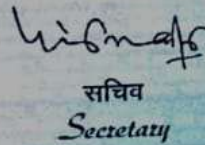 सचिव
Secretary